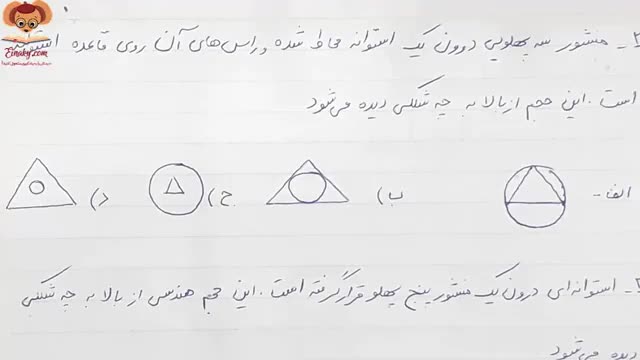 Einaky.com
۲- منشور سه پهلویی درون یک استوانه محاط شده و راس‌های آن روی قاعده استوانه
است. این حجم از بالا به چه شکلی دیده می‌شود
الف- ب) ج) د)
۳- استوانه‌ای درون یک منشور پنج پهلو قرار گرفته است. این حجم هندسی از بالا به چه شکلی
دیده می‌شود